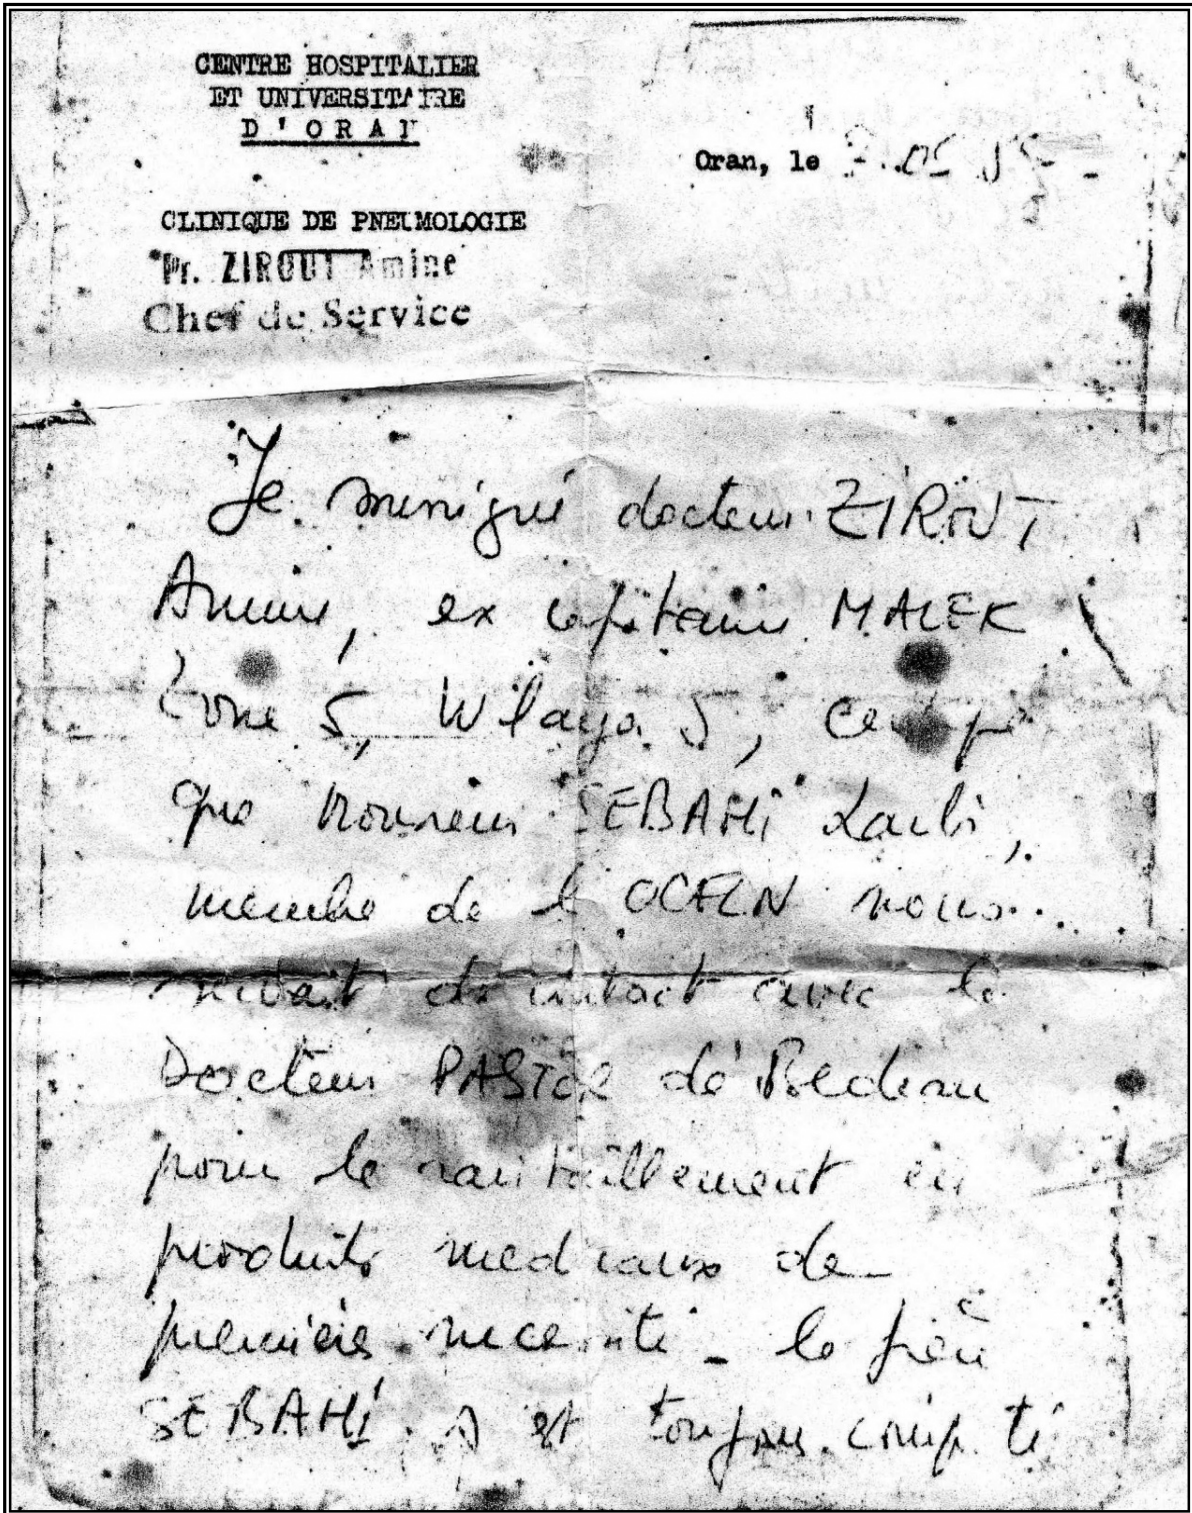 CENTRE HOSPITALIER
ET UNIVERSITAIRE
D'ORAN
Oran, le
CLINIQUE DE PNEUMOLOGIE
Pr. ZIROUT Amine
Chef de Service
Je soussigné docteur ZIROUT
Amine, ex capitaine MALEK
Zone 5, Wilaya 5, certifie
que Monsieur SEBAHI Larbi,
membre de l'OCFLN nous
servait de contact avec le
Docteur PASTOR de Bedeau
pour le ravitaillement en
produits medicaux de
première necessité - le frère
SEBAHI s'est toujours comporté